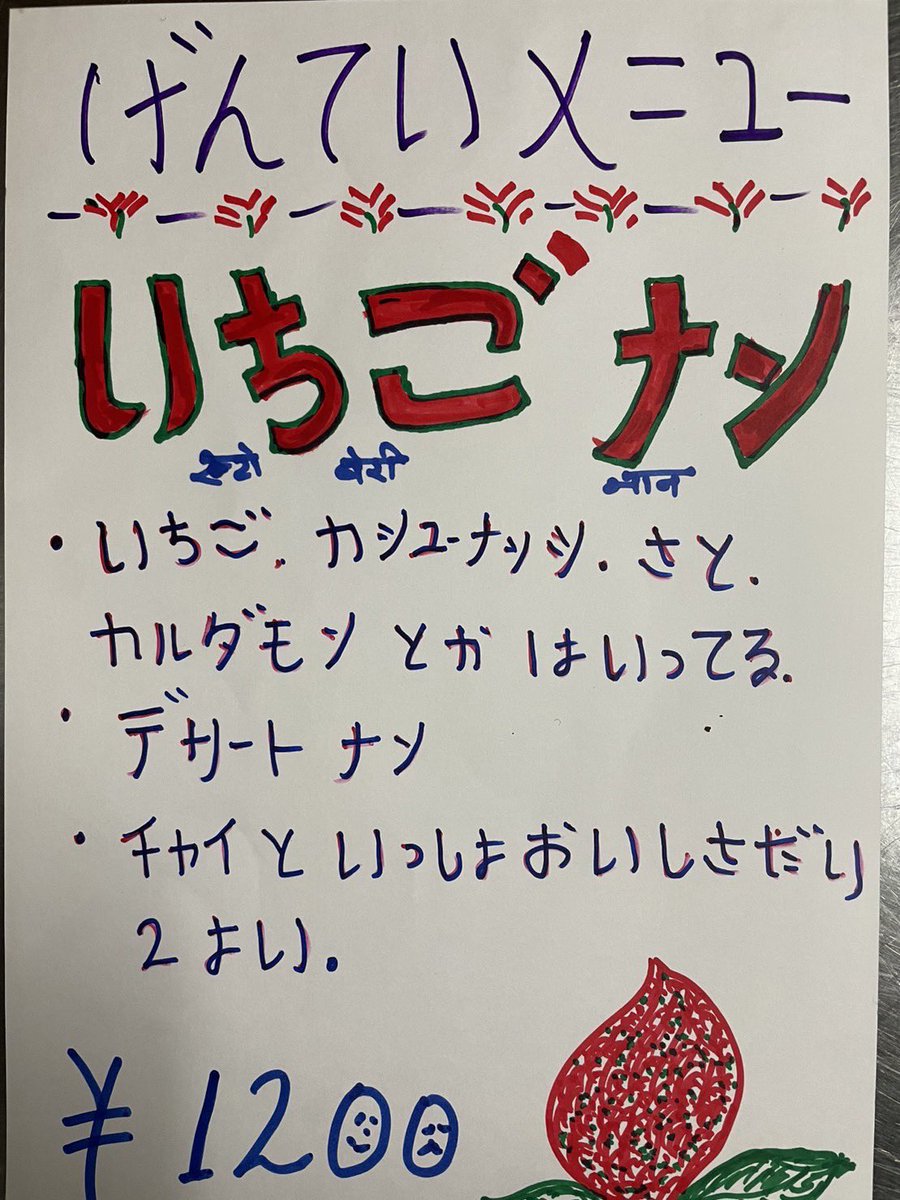 げんていメニュー
いちごナン
スtro बेरी नान
・いちご.カシューナッツ.さと.
カルダモンとかはいってる.
・デザートナン
・チャイといっしょおいしさだい
2よい.
¥1200